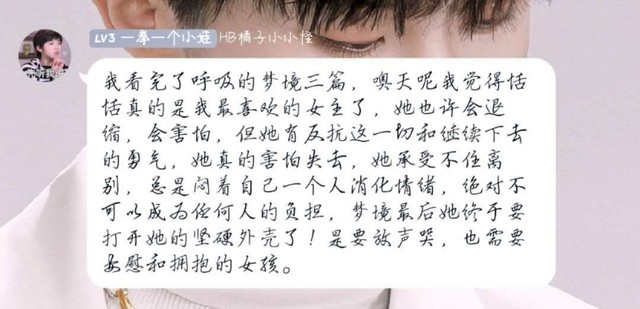 LV3 一拳一个小蛙 HB橘子小小怪
我看完了呼吸的梦境三篇，噢天呢我觉得恬
恬真的是我最喜欢的女主了，她也许会退
缩，会害怕，但她有反抗这一切和继续下去
的勇气，她真的害怕失去，她承受不住离
别，总是闷着自己一个人消化情绪，绝对不
可以成为任何人的负担，梦境最后她终于要
打开她的坚硬外壳了！是要放声哭，也需要
安慰和拥抱的女孩。